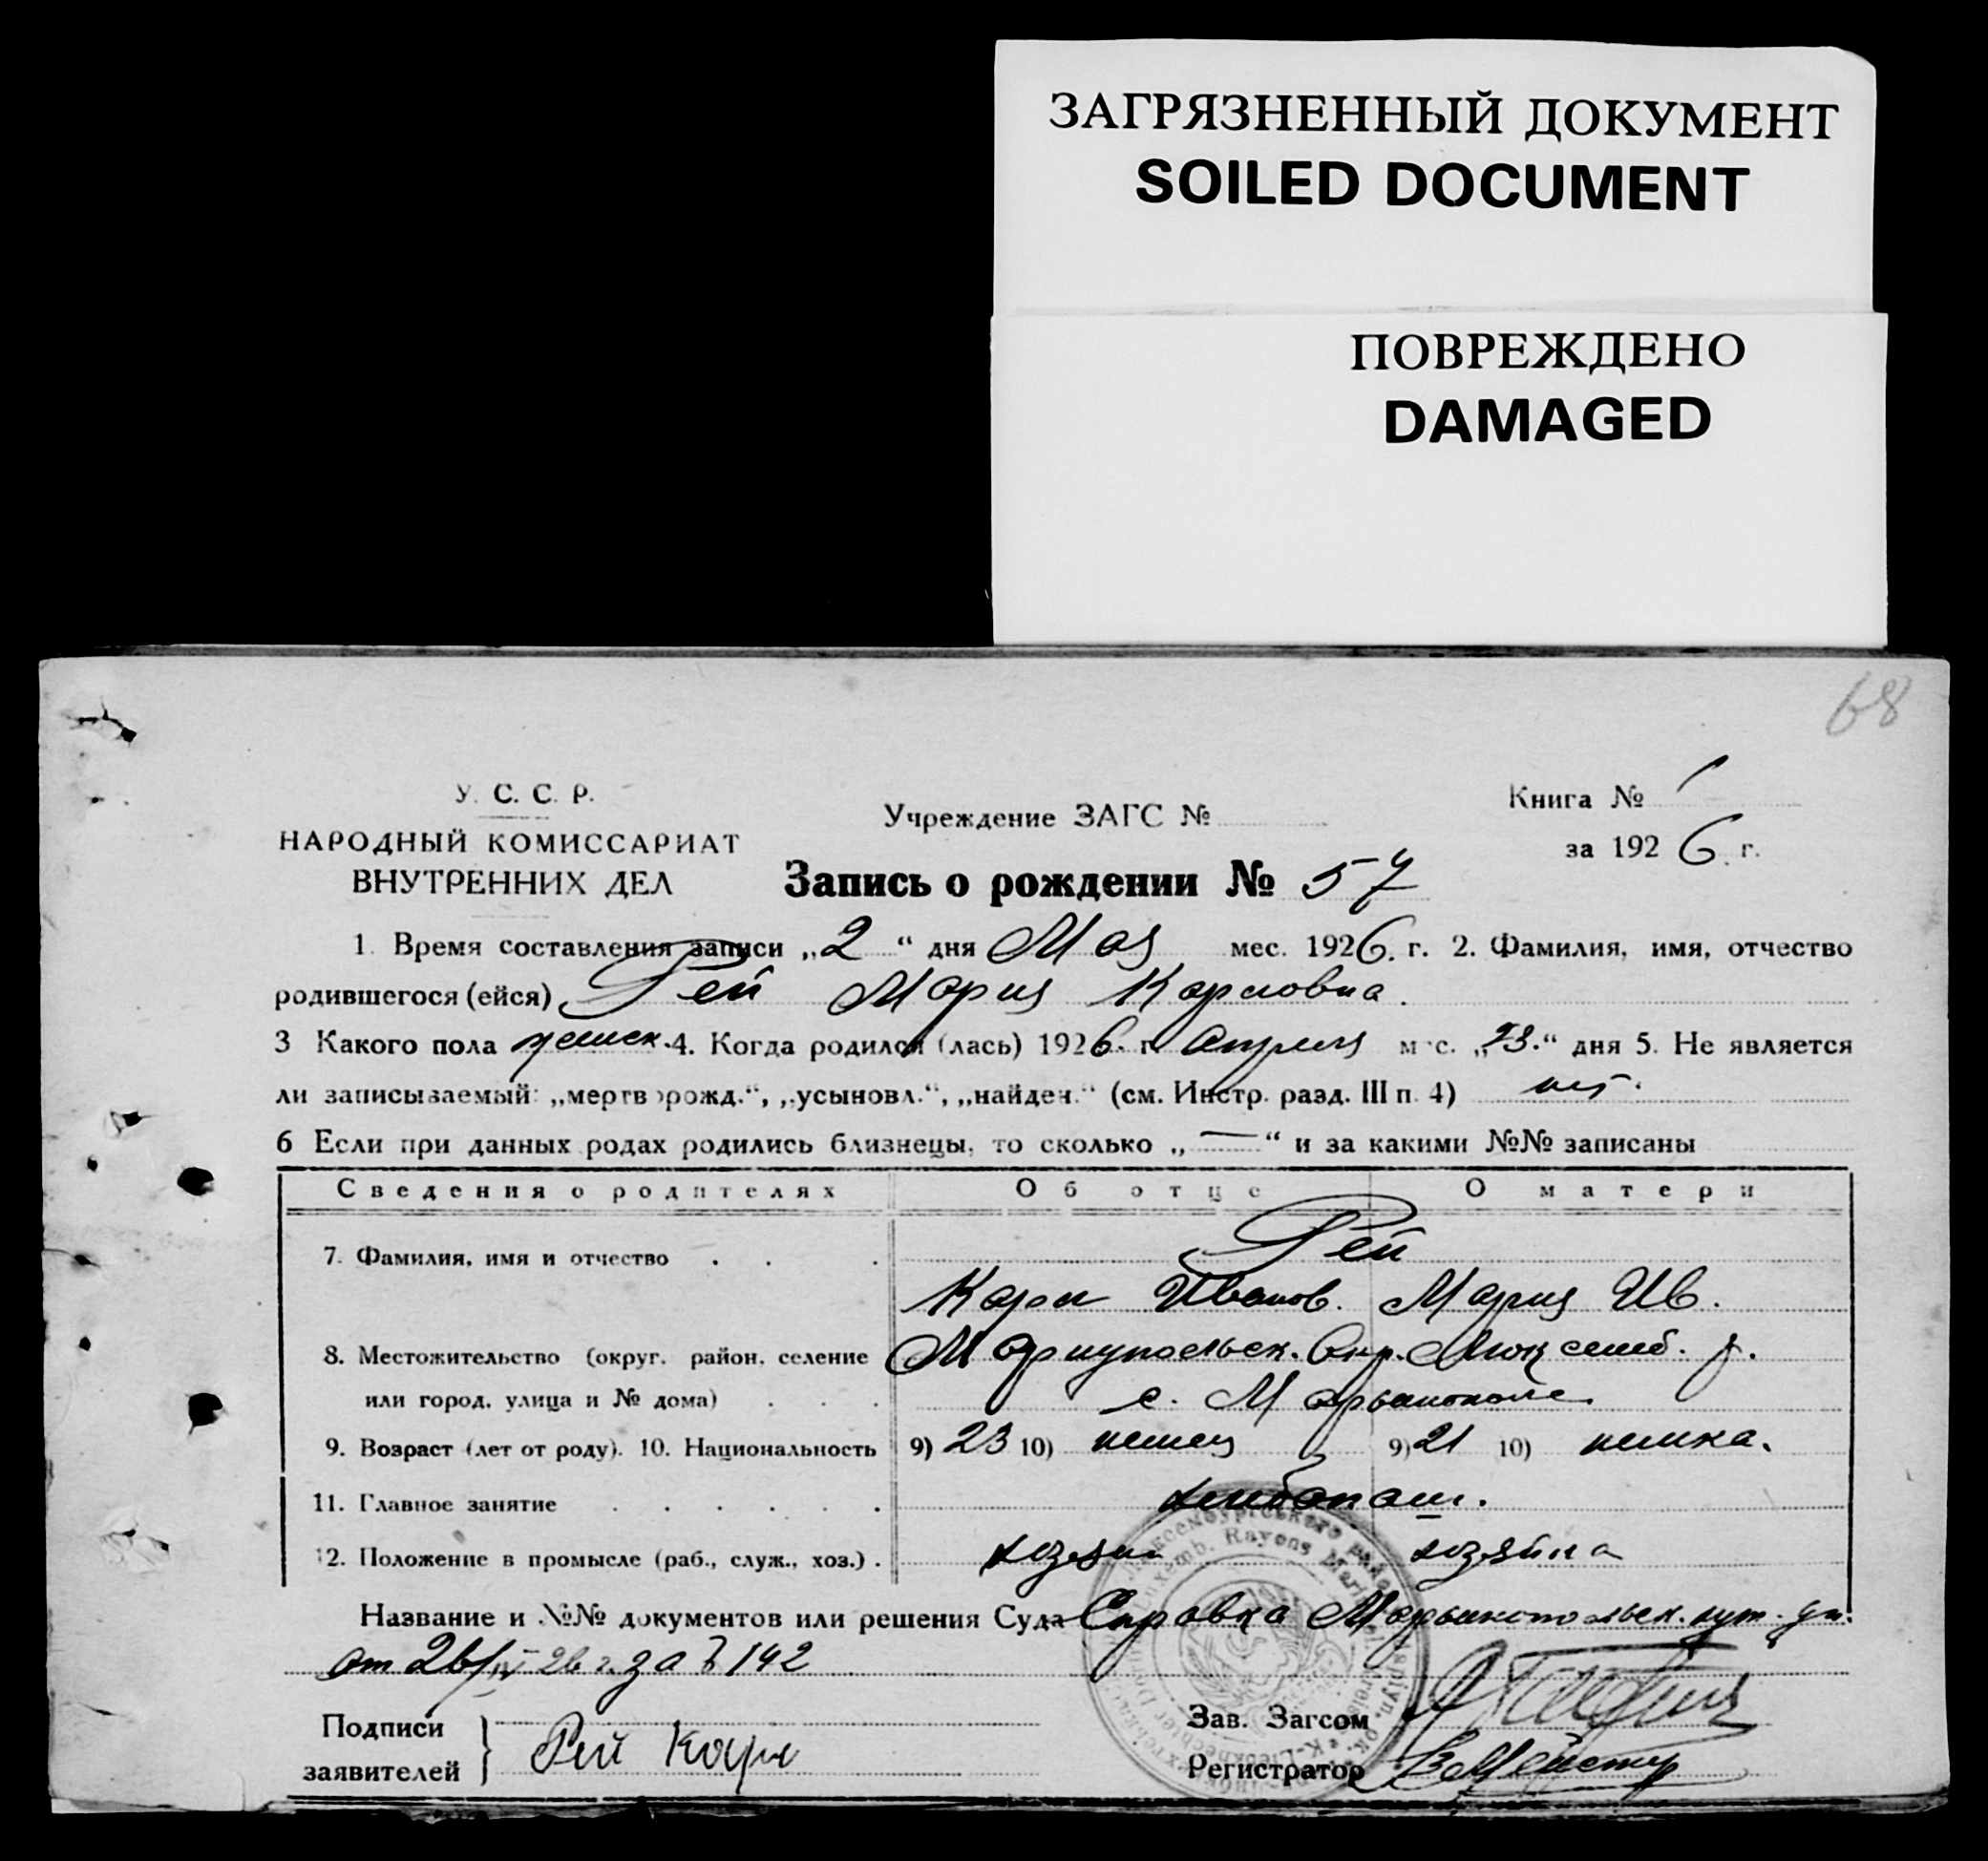 ЗАГРЯЗНЕННЫЙ ДОКУМЕНТ
SOILED DOCUMENT
ПОВРЕЖДЕНО
DAMAGED
68
У. С. С. Р.
НАРОДНЫЙ КОМИССАРИАТ
ВНУТРЕННИХ ДЕЛ
Учреждение ЗАГС №
Книга № 1
за 1926 г.
Запись о рождении № 57
1. Время составления записи „2“ дня Мая мес. 1926. г. 2. Фамилия, имя, отчество
родившегося (ейся) Рей Мария Карловна.
3 Какого пола женск. 4. Когда родился (лась) 1926. г. апреля мес. „23.“ дня 5. Не является
ли записываемый: „мертворожд.“, „усыновл.“, „найден.“ (см. Инстр. разд. III п. 4) нет.
6 Если при данных родах родились близнецы, то сколько „—“ и за какими №№ записаны
Сведения о родителях Об отце О матери
7. Фамилия, имя и отчество . . . Рей
Карл Иванов. Мария Ив.
8. Местожительство (округ, район, селение Мариупольск. Окр. Люксемб. р.
или город, улица и № дома) . . . с. Марьинополе
9. Возраст (лет от роду). 10. Национальность 9) 23 10) немец 9) 21 10) немка.
11. Главное занятие . . . . . . хлебопаш.
12. Положение в промысле (раб., служ., хоз.) . хозяин хозяйка
Название и №№ документов или решения Суда Справка Марьинопольск.
от 26/IV 26 г. за № 142
Подписи
заявителей } Рей Карл
Зав. Загсом
Регистратор
Luxemb. Rayons
K-Liebknecht